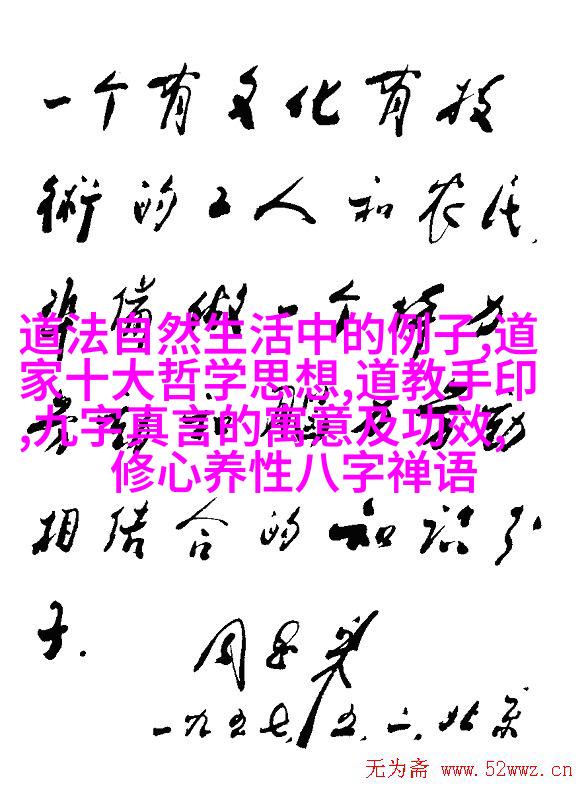 一个有文化有技
術的工人和农民,
備做一个
道法自然生活中的例子,道
家十大哲学思想,道教手印
,九字真言的寓意及功效,
修心养性八字禅语
动
相结合的知识分
子.
周恩来
一九五七,五,一,北京
无为斋 www.52wwz.cn